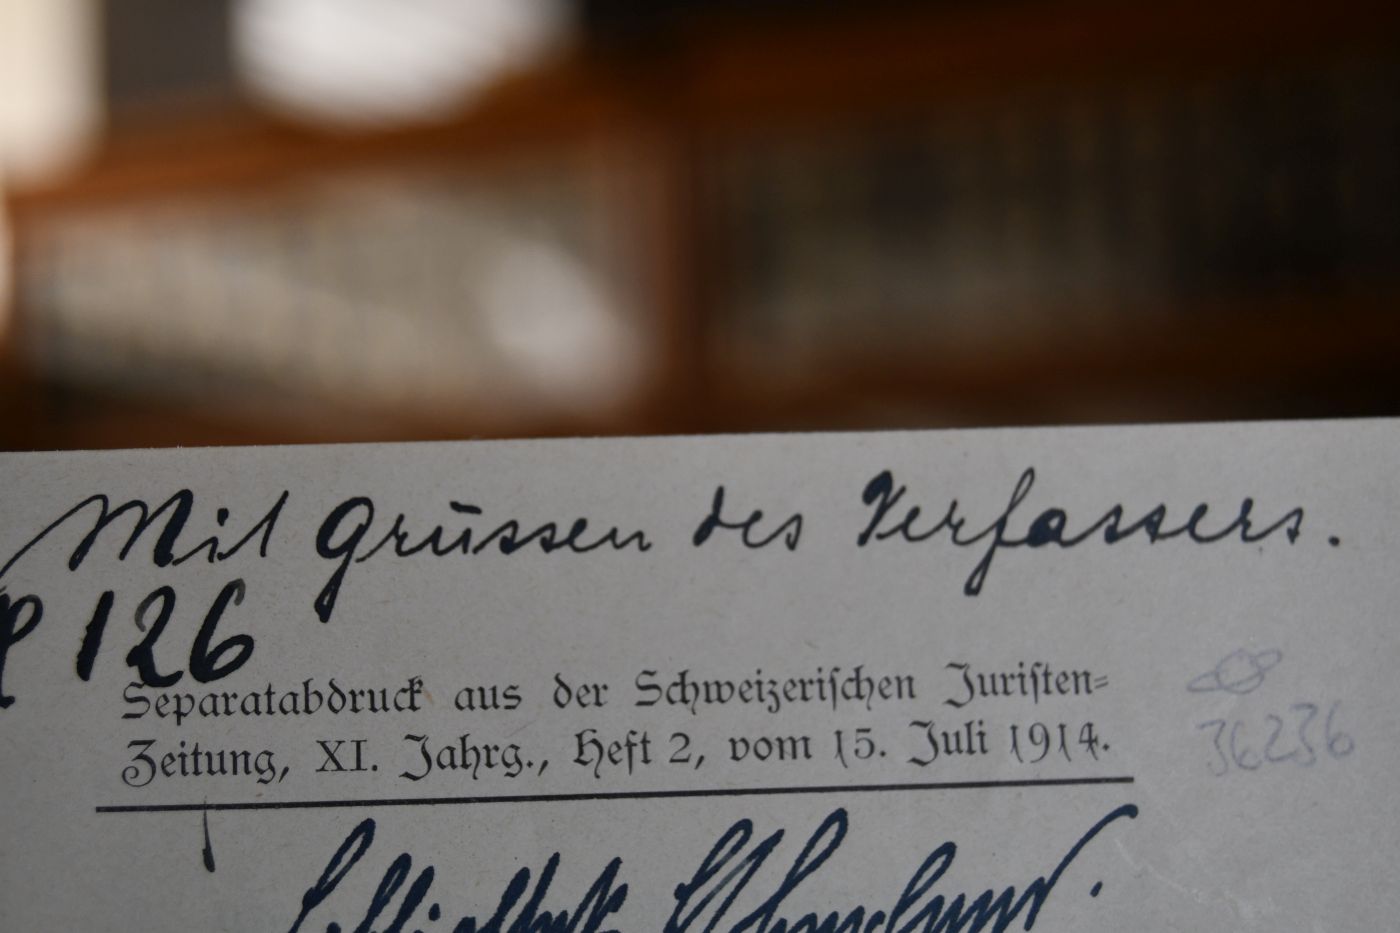 Mit Grüssen des Verfassers.
126
Separatabdruck aus der Schweizerischen Juristen-
Zeitung, XI. Jahrg., Heft 2, vom 15. Juli 1914.
36236